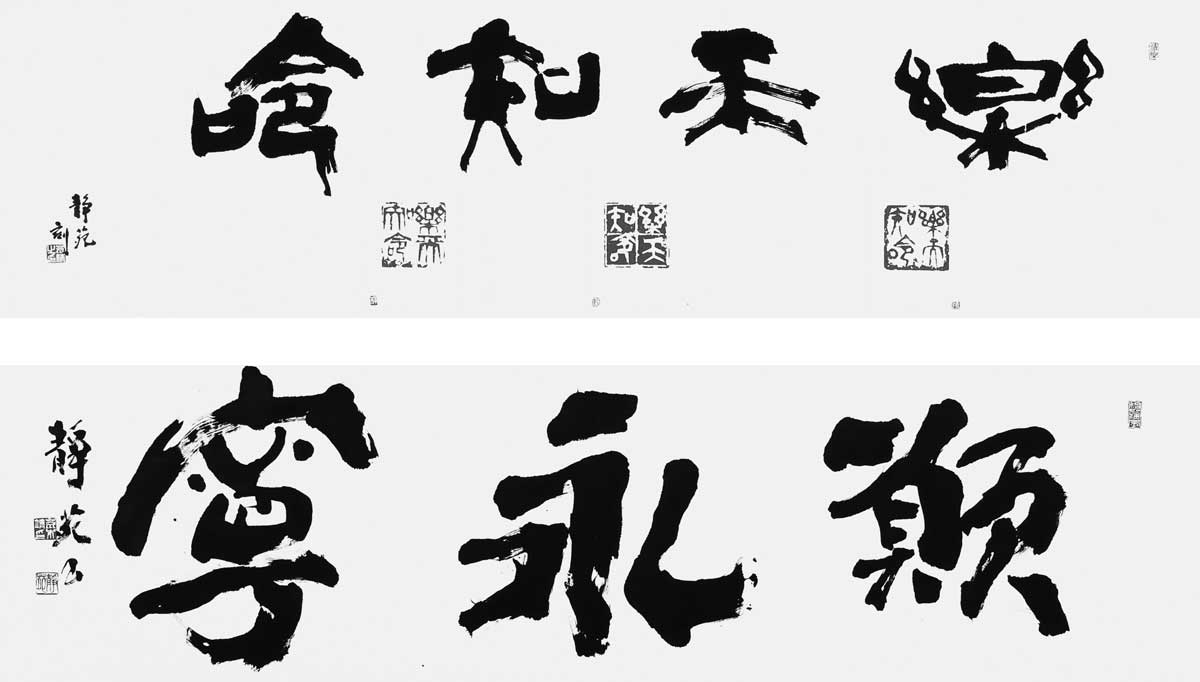 樂天知命
静苑刻
樂天知命
樂天知命
樂天知命
願永寧
靜苑